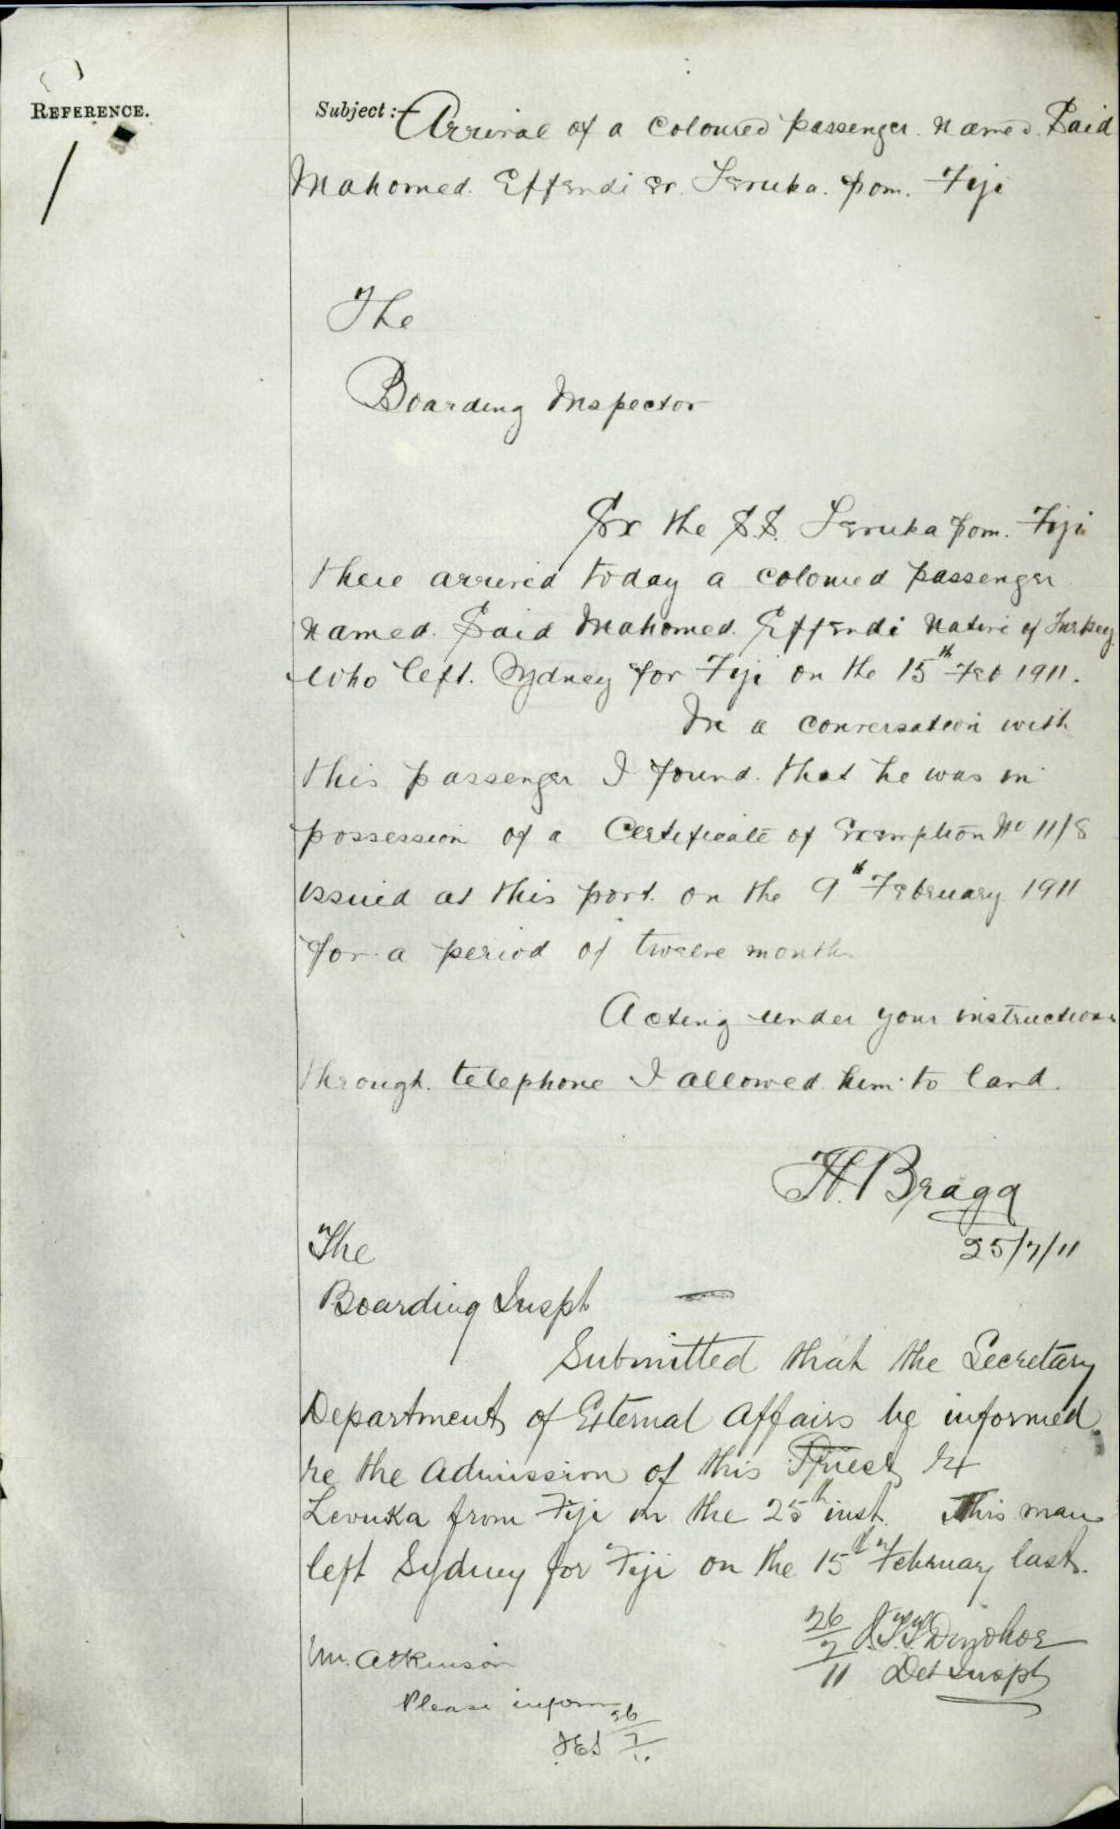 REFERENCE.
Subject:- Arrival of a coloured passenger named Said
Mahomed Effendi ex Levuka from Fiji
The
Boarding Inspector
Ex the S.S. Levuka from Fiji
there arrived today a coloured passenger
named Said Mahomed Effendi native of Turkey
who left Sydney for Fiji on the 15th Feb 1911.
In a conversation with
this passenger I found that he was in
possession of a Certificate of Exemption No 11/8
issued at this port on the 9th February 1911
for a period of twelve months
Acting under your instructions
through telephone I allowed him to land.
H. Bragg
25/7/11
The
Boarding Inspt
Submitted that the Secretary
Department of External Affairs be informed
re the admission of this Priest ex
Levuka from Fiji on the 25th inst. This man
left Sydney for Fiji on the 15th February last.
26/7/11 Donohoe
Det Inspt
Mr. Atkinson
Please inform
26/7